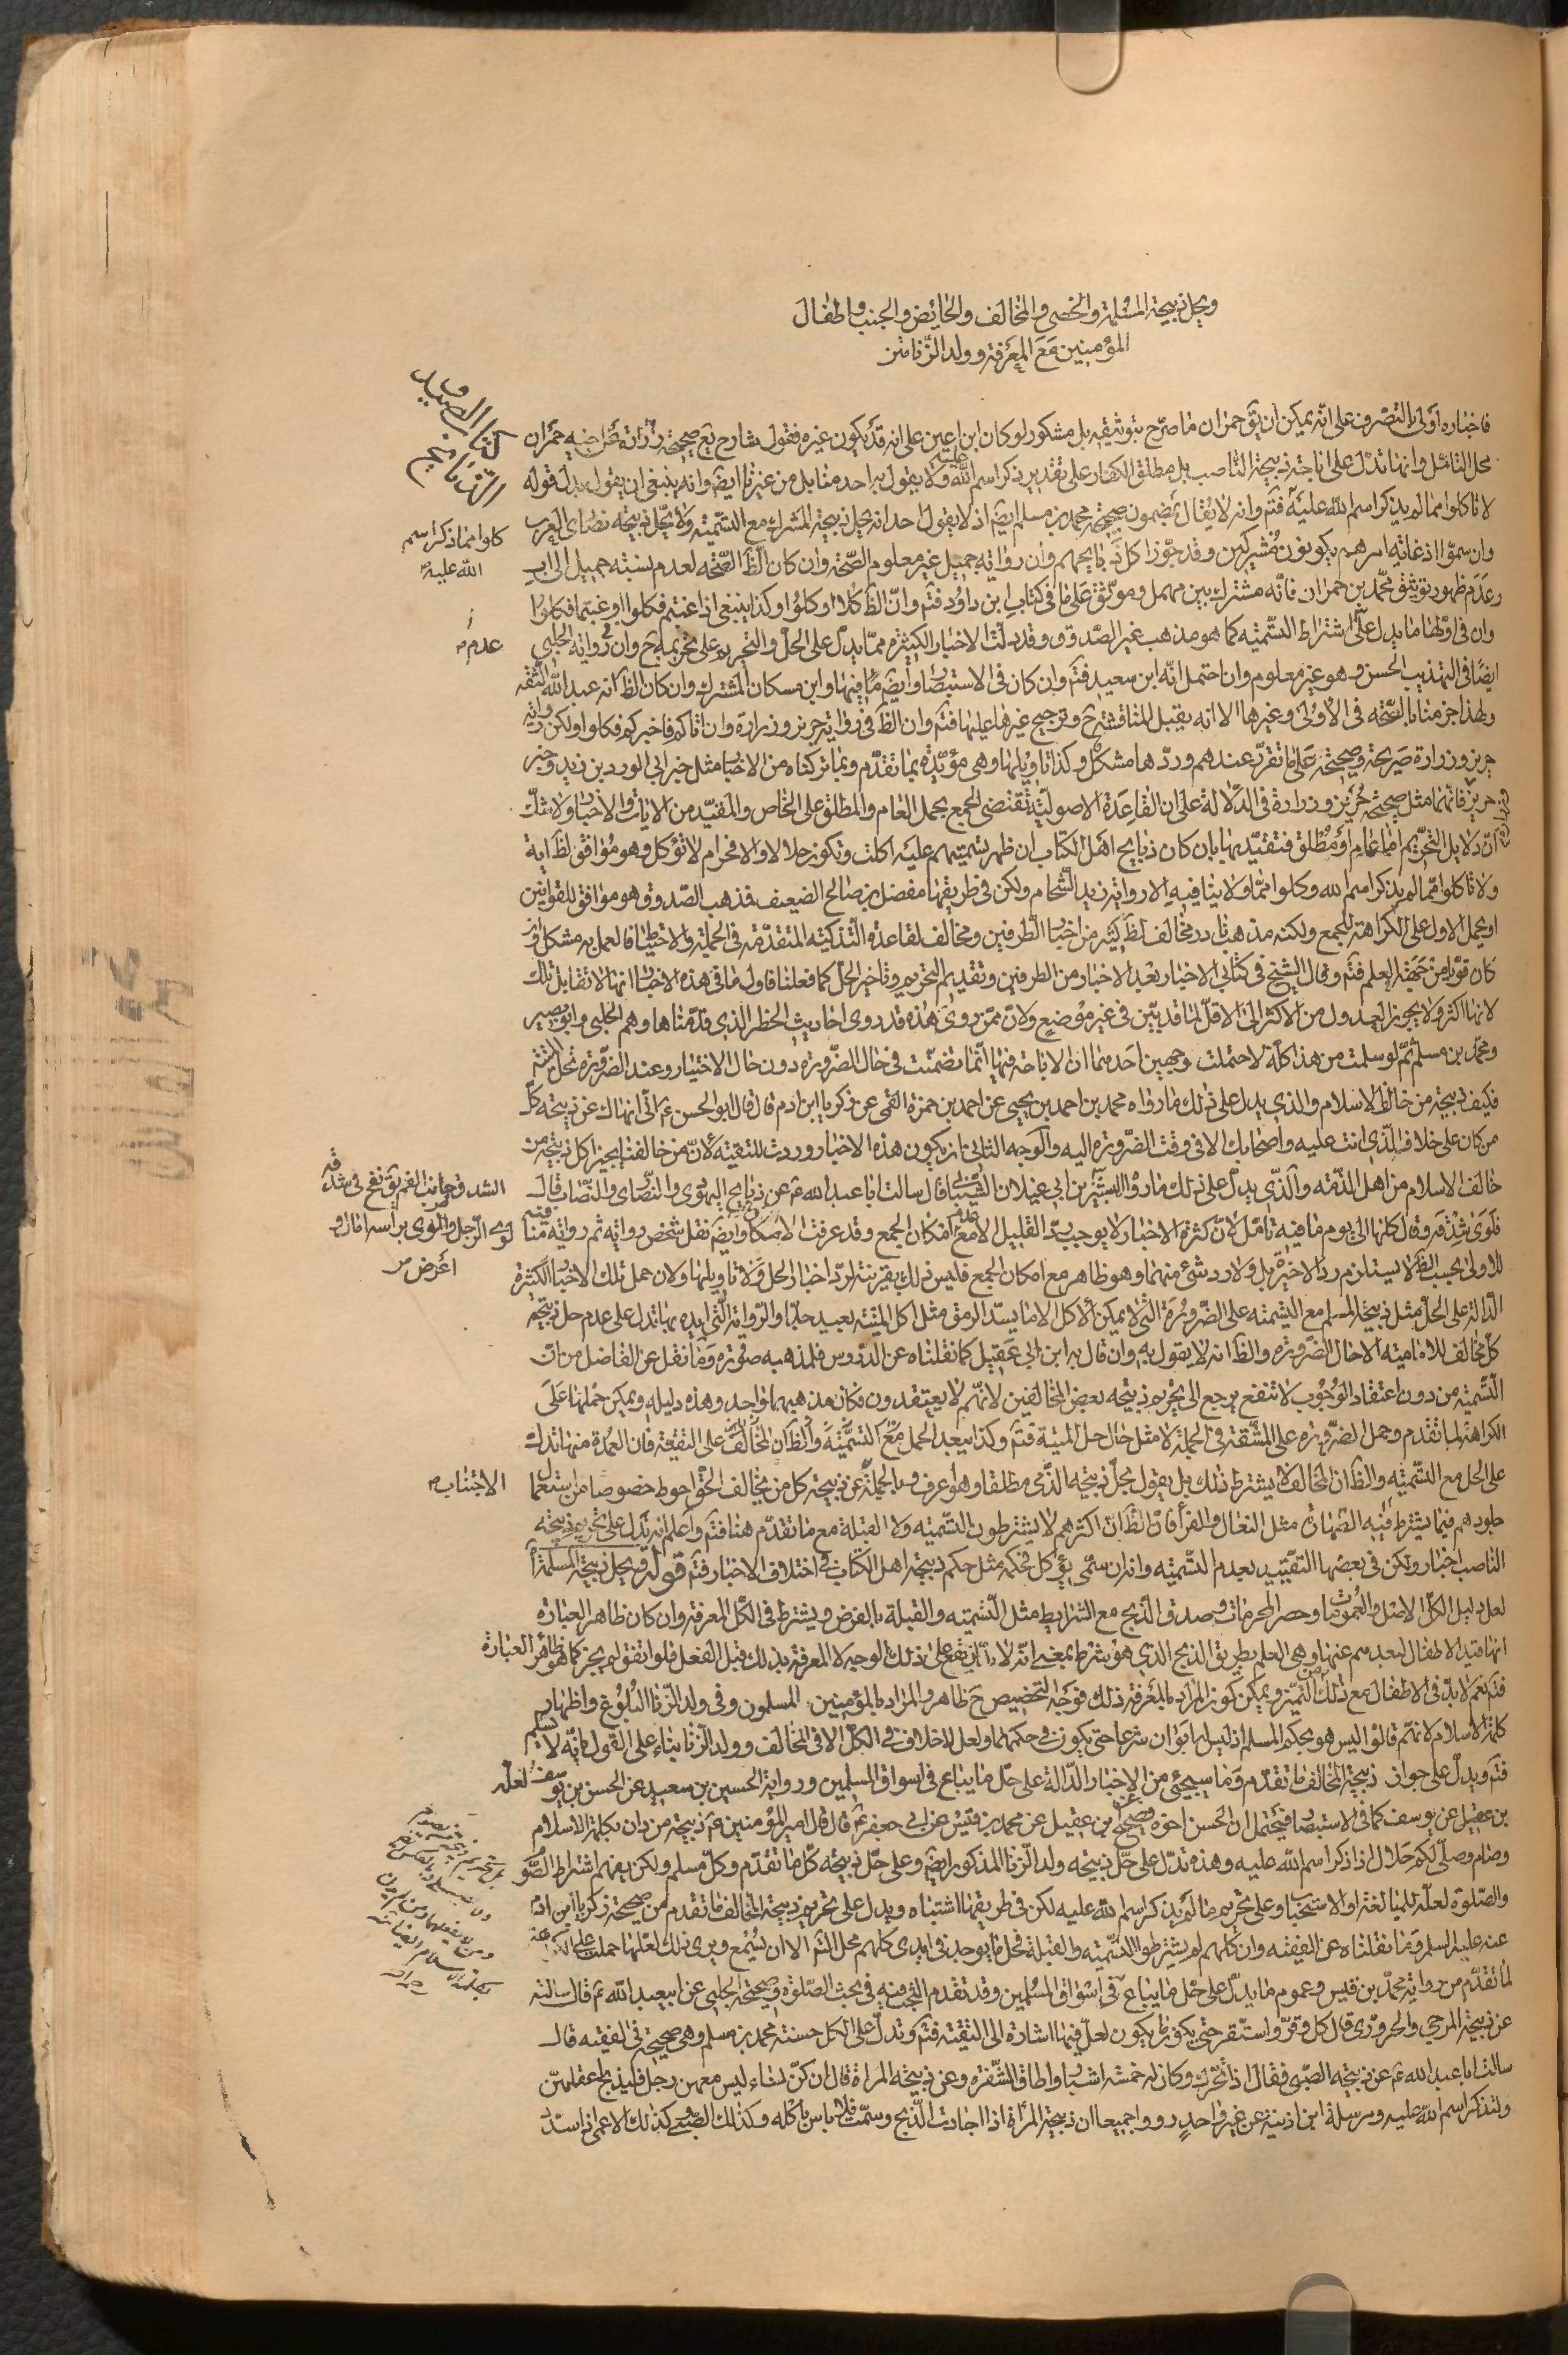 ويحل ذبيحة المسلمة والخصي والمخالف والحائض والجنب واطفال
المؤمنين مع المعرفة وولد الزنا متن
كتاب الصيد و
الذبايح
فاخباره اولى بالتصرف على انه يمكن ان يق حمران ما صرح بتوثيقه بل مشكور لو كان ابن اعين على انه قد يكون غيره فقول شارح يع صحيحة زرارة عن اخيه حمران
محل التامل وانها تدل على اباحة ذبيحة الناصب بل مطلق الكفار على تقدير ذكر اسم الله عليه ولا يقول به احد منا بل من غيرنا ايضا وانه ينبغي ان يقول بدل قوله
لا تاكلوا مما لم يذكر اسم الله عليه فتم وانه لا يقال بمضمون صحيحة محمد بن مسلم ايضا اذ لا يقول احد انه يحل ذبيحة المشرك مع التسمية ولا يحل ذبيحة نصارى العرب
كلوا مما ذكر اسم
الله عليه
وان سموا اذ غايته امرهم يكونون مشركين وقد جوز اكل ذبايحهم وان رواية جميل غير معلوم الصحة وان كان الظ الصحة لعدم نسبته جميل الى اب
وعدم ظهور توثيق محمد بن حمران فانه مشترك بين مهمل وموثق على ما في كتاب ابن داود فتم وان الظ كلا او كلوا وكذا ينبغي اذا غبتم فكلوا او غبتما فكلوا
وان في اولها ما يدل على اشتراط التسمية كما هو مذهب غير الصدوق وقد دلت الاخبار الكثيرة مما يدل على الحل والتحريم على تحريمه ح وان في رواية الحلبي
عدم
ايضا في التهذيب الحسن وهو غير معلوم وان احتمل انه ابن سعيد فتم وان كان في الاستبصار وايضا ما فيها وابن مسكان المشترك وان كان الظ انه عبد الله الثقة
ولهذا جزمنا بالصحة في الاولى وغيرها الا انه يقبل المناقشة ح وترجيح غيرها عليها فتم وان الظ في رواية حريز وزرارة وان اتاكم فاخبركم فكلوا ولكن رواية
حريز وزرارة صريحة وصحيحة على ما تقرر عندهم وردها مشكل وكذا تاويلها وهي مؤيدة بما تقدم وبما تركناه من الاخبار مثل خبر ابي الورد بن زيد وخبر
حريز فانهما مثل صحيحة حريز وزرارة في الدلالة على ان القاعدة الاصولية تقتضي الجمع بحمل العام والمطلق على الخاص والمقيد من الايات والاخبار ولا شك
ان دلايل التحريم اما عام او مطلق فتقيد بها بان كان ذبايح اهل الكتاب ان ظهر تسميتهم عليه اكلت وتكون حلالا والا فحرام لا تؤكل وهو موافق لظ اية
ولا تاكلوا مما لم يذكر اسم الله وكلوا مما ولا ينافيه الا رواية زيد الشحام ولكن في طريقها مفضل بن صالح الضعيف فذهب الصدوق وهو موافق للقوانين
او يحمل الاول على الكراهة للجمع ولكنه مذهب نادر مخالف لظ كثير من اخبار الطرفين ومخالف لقاعدة التذكية المتقدمة في الجملة والاحتياط فالعمل به مشكل وان
كان قويا من جهة العلم فتم وقال الشيخ في كتابي الاخبار بعد الاخبار من الطرفين وتقديم التحريم وتاخير الحل كما فعلنا فاول ما في هذه الاخبار انها لا تقابل تلك
لانها اكثر ولا يجوز العدول من الاكثر الى الاقل لما قد بين في غير موضع ولان ممن روى هذه قد روى احاديث الحظر الذي قدمناها وهم الحلبي وابو بصير
ومحمد بن مسلم ثم لو سلمت من هذا كله لاحتملت وجهين احدهما ان الاباحة فيها انما تضمنت في حال الضرورة دون حال الاختيار وعند الضرورة تحل الميتة
فكيف ذبيحة من خالف الاسلام والذي يدل على ذلك ما رواه محمد بن احمد بن يحيى عن احمد بن حمزة القمي عن زكريا ابن ادم قال قال ابو الحسن ع اني انهاك عن ذبيحة كل
من كان على خلاف الذي انت عليه واصحابك الا في وقت الضرورة اليه والوجه الثاني ان يكون هذه الاخبار وردت للتقية لان من خالفنا يجيز اكل ذبيحة من
خالف الاسلام من اهل الذمة والذي يدل على ذلك ما رواه البشير بن ابي غيلان الشيباني قال سالت ابا عبد الله ع عن ذبايح اليهود والنصارى والنصاب قال
فلوى شدقه وقال كلها الى يوم ما فيه تامل لان كثرة الاخبار لا يوجب رد القليل الا مع عدم امكان الجمع وقد عرفت الامكان وايضا نقل شخص رواية ثم رواية منافية
الشدق جانب الفم
لوى الرجل والوى براسه امال و
اعرض
للاولى بحسب الظ لا يستلزم رد الاخيرة بل ولا رد شئ منهما وهو ظاهر مع امكان الجمع فليس ذلك بقرينة لرد اخبار الحل ولا تاويلها ولان حمل تلك الاخبار الكثيرة
الدالة على الحل مثل ذبيحة المسلم مع التسمية على الضرورة التي لا يمكن الاكل الا ما يسد الرمق مثل اكل الميتة بعيد جدا والرواية التي ايده بها تدل على عدم حل ذبيحة
كل مخالف للامامية الا حال الضرورة والظ انه لا يقول به وان قال به ابن ابي عقيل كما نقلناه عن الدروس فلمذهبه صورة وما نقل عن الفاضل من ان
التسمية من دون اعتقاد الوجوب لا تنفع يرجع الى تحريم ذبيحة بعض المخالفين لانهم لا يعتقدون فكان مذهبهما واحد وهذه دليله ويمكن حملها على
الكراهة لما تقدم وحمل الضرورة على المشقة في الجملة لا مثل حال حل الميتة فتم وكذا يبعد الحمل مع التسمية والظ ان المخالف على التقية فان العمدة منها تدل
على الحل مع التسمية والظ ان المخالف لا يشترط ذلك بل يقول بحل ذبيحة الذمي مطلقا وهو اعرف وبالجملة عن ذبيحة كل من يخالف الحق احوط خصوصا من استعمال
الاجتناب
جلودهم فيما يشترط فيه الطهارة مثل النعال والفرا فان الظ ان اكثرهم لا يشترطون التسمية ولا القبلة مع ما تقدم هنا فتم واعلم انه تدل على تحريم ذبيحة
الناصب اخبار ولكن في بعضها التقييد بعدم التسمية وانه ان سمى يؤكل فحكمه مثل حكم ذبيحة اهل الكتاب في اختلاف الاخبار فتم قوله ويحل ذبيحة المسلمة اه
لعل دليل الكل الاصل والعمومات وحصر المحرمات وصدق الذبح مع الشرايط مثل التسمية والقبلة بالفرض ويشترط في الكل المعرفة وان كان ظاهر العبارة
انها قيد الاطفال لبعدهم عنها وهي العلم بطريق الذبح الذي هو شرط بمعنى انه لابد ان يقع على ذلك الوجه لا المعرفة بذلك قبل الفعل فلو اتفق لم يجز كما هو ظاهر العبارة
فتم نعم لابد في الاطفال مع ذلك من التميز ويمكن كون المراد بالمعرفة ذلك فوجه التخصيص ح ظاهر والمراد بالمؤمنين المسلمون وفي ولد الزنا البلوغ واظهار
كلمة الاسلام لانهم قالوا ليس هو بحكم المسلم اذ ليس له ابوان شرعا حتى يكون في حكمهما ولعل لا خلاف في الكل الا في المخالف وولد الزنا بناء على القول بانه لا يسلم
فتم ويدل على جواز ذبيحة المخالف ما تقدم وما سيجئ من الاخبار الدالة على حل ما يباع في اسواق المسلمين ورواية الحسين بن سعيد عن الحسن بن يوسف لعله
بن عقيل عن يوسف كما في الاستبصار فيحتمل ان الحسن اخوه وصحح بن عقيل عن محمد بن قيس عن ابي جعفر ع قال قال امير المؤمنين ع ذبيحة من دان بكلمة الاسلام
وصام وصلى لكم حلال اذا ذكر اسم الله عليه وهذه تدل على حل ذبيحة ولد الزنا المذكور ايضا وعلى حل ذبيحة كل ما تقدم وكل مسلم ولكن يفهم اشتراط الصوم
والصلوة لعله للمبالغة او الاستحباب وعلى تحريم ما لم يذكر اسم الله عليه لكن في طريقها اشتباه ويدل على تحريم ذبيحة المخالف ما تقدم من صحيحة زكريا ابن ادم
عنه عليه السلم وما نقلناه عن الفقيه وان كلهم لم يشترطوا التسمية والقبلة فحل ما يوجد في ايدي كلهم محل التم الا ان يسمع ويرى ذلك لعلها حملت على الكراهة
لما تقدم من رواية محمد بن قيس وعموم ما يدل على حل ما يباع في اسواق المسلمين وقد تقدم البحث فيه في بحث الصلوة وصحيحة الحلبي عن ابي عبد الله ع قال سالته
عن ذبيحة المرجي والحروري قال كل وقر واستقر حتى يكون ما يكون لعل فيها اشارة الى التقية فتم وتدل على الكل حسنة محمد بن مسلم وهي صحيحة في الفقيه قال
سالت ابا عبد الله ع عن ذبيحة الصبي فقال اذا تحرك وكان له خمسة اشبار واطاق الشفرة وعن ذبيحة المراة قال ان كن نساء ليس معهن رجل فليذبح اعقلهن
ولتذكر اسم الله عليه ومرسلة ابن اذينة عن غير واحد رووا جميعا ان ذبيحة المراة اذا اجادت الذبح وسمت فلا باس باكله وكذلك الصبي وكذلك الاعمى اذا سدد